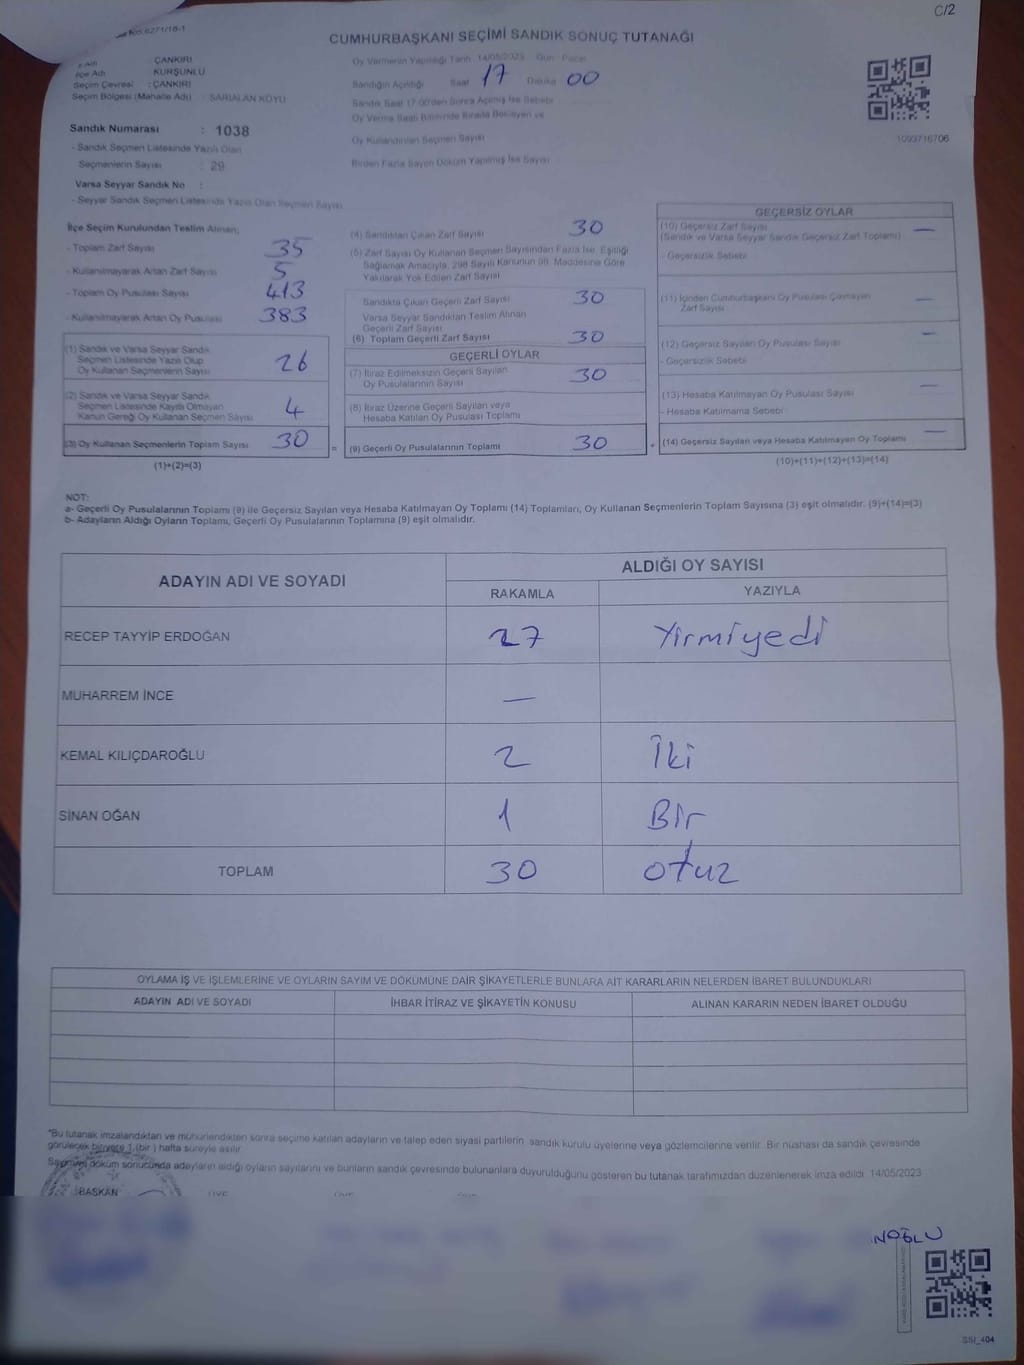 C/2
CUMHURBAŞKANI SEÇİMİ SANDIK SONUÇ TUTANAĞI
ÇANKIRI
İlçe Adı : KURŞUNLU
Seçim Çevresi : ÇANKIRI
Seçim Bölgesi (Mahalle Adı) : SARIALAN KÖYÜ
Oy Vermenin Yapıldığı Tarih 14/05/2023 Gün Pazar
Sandığın Açıldığı Saat 17 Dakika 00
Sandık Saat 17:00'den Sonra Açılmış İse Sebebi
Oy Verme Saati Bitiminde Sırada Bekleyen ve
Oy Kullandırılan Seçmen Sayısı
Birden Fazla Sayım Döküm Yapılmış İse Sayısı
1093716706
Sandık Numarası : 1038
- Sandık Seçmen Listesinde Yazılı Olan
Seçmenlerin Sayısı : 29
Varsa Seyyar Sandık No :
- Seyyar Sandık Seçmen Listesinde Yazılı Olan Seçmen Sayısı
İlçe Seçim Kurulundan Teslim Alınan;
- Toplam Zarf Sayısı 35
- Kullanılmayarak Artan Zarf Sayısı 5
- Toplam Oy Pusulası Sayısı 413
- Kullanılmayarak Artan Oy Pusulası 383
(1) Sandık ve Varsa Seyyar Sandık
Seçmen Listesinde Yazılı Olup
Oy Kullanan Seçmenlerin Sayısı 26
(2) Sandık ve Varsa Seyyar Sandık
Seçmen Listesinde Kayıtlı Olmayan
Kanun Gereği Oy Kullanan Seçmen Sayısı 4
(3) Oy Kullanan Seçmenlerin Toplam Sayısı 30
(1)+(2)=(3)
(4) Sandıktan Çıkan Zarf Sayısı 30
(5) Zarf Sayısı Oy Kullanan Seçmen Sayısından Fazla İse, Eşitliği
Sağlamak Amacıyla, 298 Sayılı Kanunun 98. Maddesine Göre
Yakılarak Yok Edilen Zarf Sayısı
Sandıkta Çıkan Geçerli Zarf Sayısı 30
Varsa Seyyar Sandıktan Teslim Alınan
Geçerli Zarf Sayısı
(6) Toplam Geçerli Zarf Sayısı 30
GEÇERLİ OYLAR
(7) İtiraz Edilmeksizin Geçerli Sayılan
Oy Pusulalarının Sayısı 30
(8) İtiraz Üzerine Geçerli Sayılan veya
Hesaba Katılan Oy Pusulaları Toplamı
= (9) Geçerli Oy Pusulalarının Toplamı 30 +
GEÇERSİZ OYLAR
(10) Geçersiz Zarf Sayısı —
(Sandık ve Varsa Seyyar Sandık Geçersiz Zarf Toplamı)
- Geçersizlik Sebebi
(11) İçinden Cumhurbaşkanı Oy Pusulası Çıkmayan —
Zarf Sayısı
(12) Geçersiz Sayılan Oy Pusulası Sayısı —
- Geçersizlik Sebebi
(13) Hesaba Katılmayan Oy Pusulası Sayısı —
- Hesaba Katılmama Sebebi
(14) Geçersiz Sayılan veya Hesaba Katılmayan Oy Toplamı —
(10)+(11)+(12)+(13)=(14)
NOT:
a- Geçerli Oy Pusulalarının Toplamı (9) ile Geçersiz Sayılan veya Hesaba Katılmayan Oy Toplamı (14) Toplamları, Oy Kullanan Seçmenlerin Toplam Sayısına (3) eşit olmalıdır. (9)+(14)=(3)
b- Adayların Aldığı Oyların Toplamı, Geçerli Oy Pusulalarının Toplamına (9) eşit olmalıdır.
ADAYIN ADI VE SOYADI ALDIĞI OY SAYISI
RAKAMLA YAZIYLA
RECEP TAYYİP ERDOĞAN 27 Yirmiyedi
MUHARREM İNCE —
KEMAL KILIÇDAROĞLU 2 İki
SİNAN OĞAN 1 Bir
TOPLAM 30 otuz
OYLAMA İŞ VE İŞLEMLERİNE VE OYLARIN SAYIM VE DÖKÜMÜNE DAİR ŞİKAYETLERLE BUNLARA AİT KARARLARIN NELERDEN İBARET BULUNDUKLARI
ADAYIN ADI VE SOYADI İHBAR İTİRAZ VE ŞİKAYETİN KONUSU ALINAN KARARIN NEDEN İBARET OLDUĞU
*Bu tutanak imzalandıktan ve mühürlendikten sonra seçime katılan adayların ve talep eden siyasi partilerin sandık kurulu üyelerine veya gözlemcilerine verilir. Bir nüshası da sandık çevresinde
görülecek bir yere 1 (bir) hafta süreyle asılır.
Sayım ve döküm sonucunda adayların aldığı oyların sayılarını ve bunların sandık çevresinde bulunanlara duyurulduğunu gösteren bu tutanak tarafımızdan düzenlenerek imza edildi. 14/05/2023
BAŞKAN
NOĞLU
SSI_404